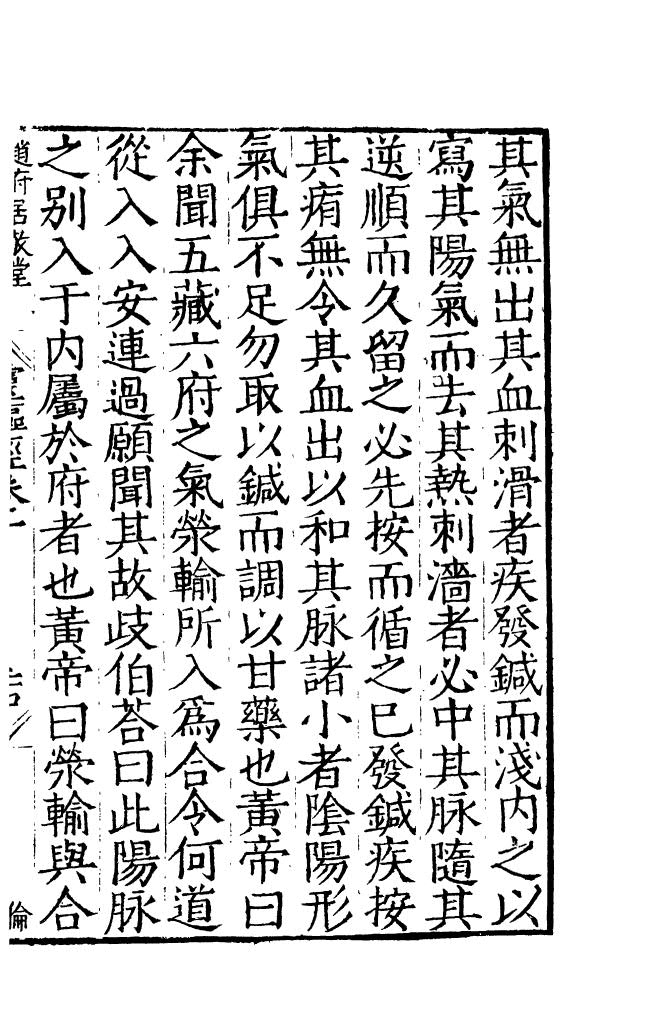 其氣無出其血刺滑者疾發鍼而淺内之以
寫其陽氣而去其熱刺濇者必中其脉隨其
逆順而久留之必先按而循之已發鍼疾按
其痏無令其血出以和其脉諸小者隂陽形
氣俱不足勿取以鍼而調以甘藥也黃帝曰
余聞五藏六府之氣滎輸所入爲合令何道
從入入安連過願聞其故歧伯荅曰此陽脉
之别入于内屬於府者也黃帝曰滎輸與合
趙府居敬堂
靈樞經卷
倫